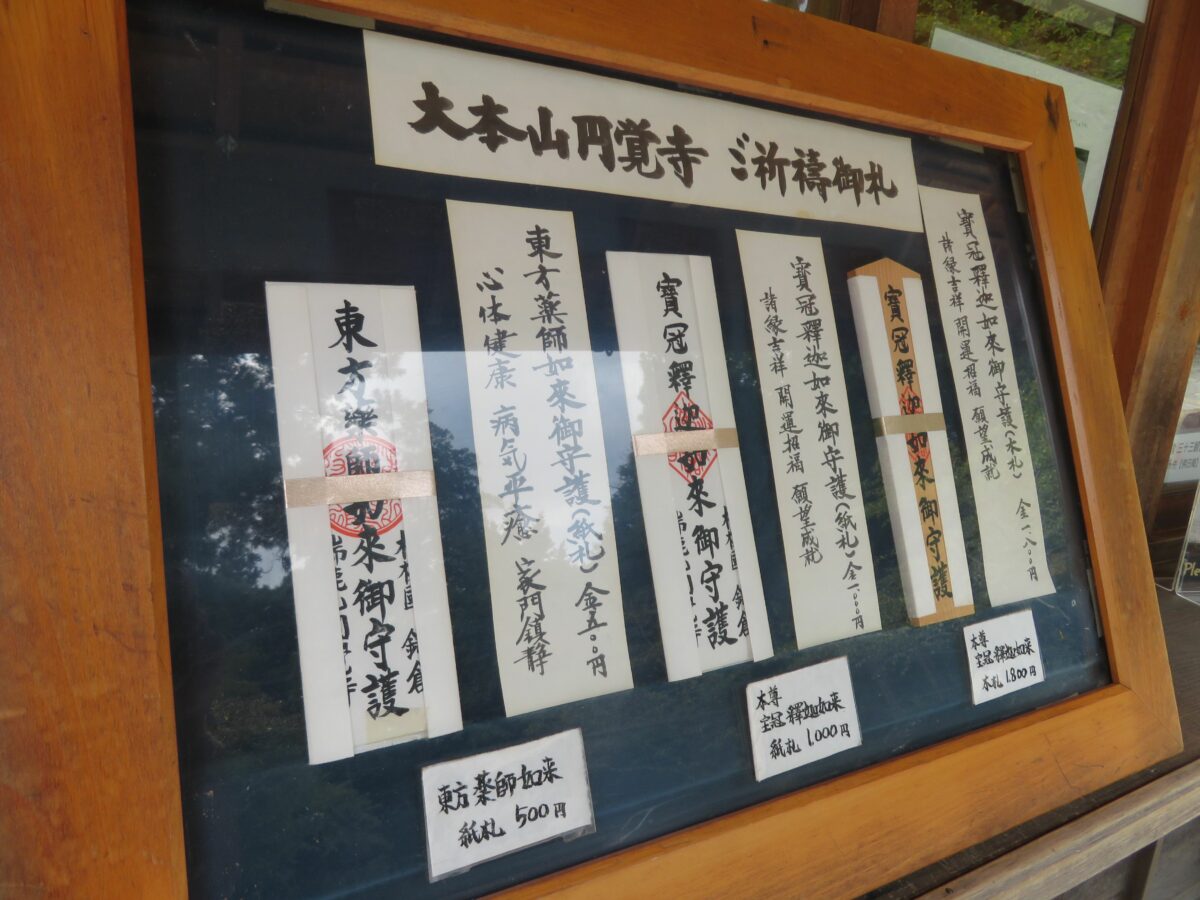 大本山円覚寺 ご祈禱御札
寳冠釋迦如來御守護(木札) 金一、八〇〇円
諸縁吉祥 開運招福 願望成就
寳冠釋迦如來御守護
寳冠釋迦如來御守護(紙札) 金一、〇〇〇円
諸縁吉祥 開運招福 願望成就
寳冠釋迦如來御守護
鎌倉
東方薬師如來御守護(紙札) 金五〇〇円
心体健康 病気平癒 家門鎮静
東方薬師如來御守護
鎌倉
本尊
宝冠釋迦如来
木札 1,800円
本尊
宝冠釋迦如来
紙札 1,000円
東方薬師如来
紙札 500円